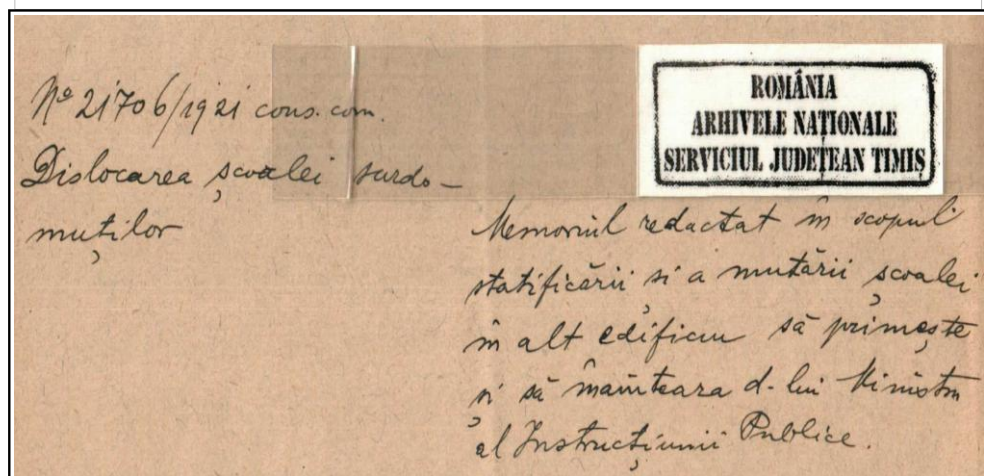 Nº 21706/1921 cons. com.
Dislocarea școalei surdo-
muților
ROMÂNIA
ARHIVELE NAȚIONALE
SERVICIUL JUDEȚEAN TIMIȘ
Memoriul redactat în scopul
statificării și a mutării școalei
în alt edificiu să primește
și să înainteara d-lui Ministru
al Instrucțiunii Publice.